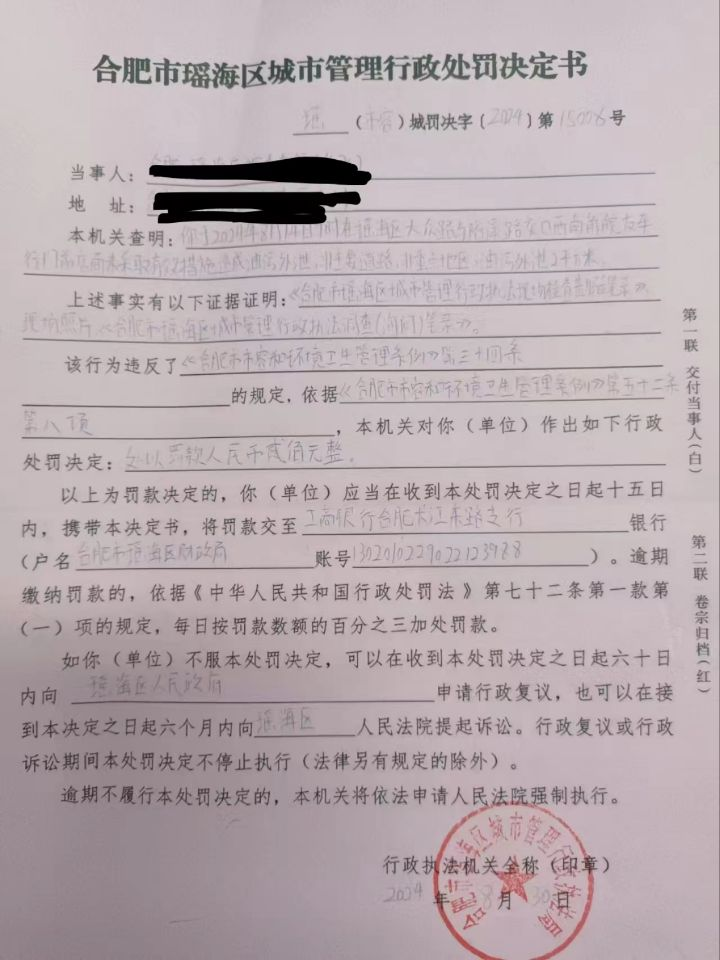 合肥市瑶海区城市管理行政处罚决定书
瑶（市容）城罚决字〔2024〕第15006号
当事人：
地 址：
本机关查明：你于2024年8月14日 时在瑶海区大众路与 路交口西南角皖友车
行门前 未采取有效措施造成油污外泄，非主要道路，非重点地区，油污外泄2平方米。
上述事实有以下证据证明：《合肥市瑶海区城市管理行政执法现场检查 笔录》、
现场照片、《合肥市瑶海区城市管理行政执法调查（询问）笔录》。
该行为违反了《合肥市市容和环境卫生管理条例》第三十四条
的规定，依据《合肥市市容和环境卫生管理条例》第五十二条
第八项，本机关对你（单位）作出如下行政
处罚决定：处以罚款人民币贰佰元整。
以上为罚款决定的，你（单位）应当在收到本处罚决定之日起十五日
内，携带本决定书，将罚款交至工商银行合肥长江东路支行银行
（户名合肥市瑶海区财政局账号1302010229022123988）。逾期
缴纳罚款的，依据《中华人民共和国行政处罚法》第七十二条第一款第
（一）项的规定，每日按罚款数额的百分之三加处罚款。
如你（单位）不服本处罚决定，可以在收到本处罚决定之日起六十日
内向 瑶海区人民政府 申请行政复议，也可以在接
到本决定之日起六个月内向瑶海区人民法院提起诉讼。行政复议或行政
诉讼期间本处罚决定不停止执行（法律另有规定的除外）。
逾期不履行本处罚决定的，本机关将依法申请人民法院强制执行。
行政执法机关全称（印章）
2024年8月30日
合肥市瑶海区城市管理行政执法局
第一联 交付当事人（白）
第二联 卷宗归档（红）